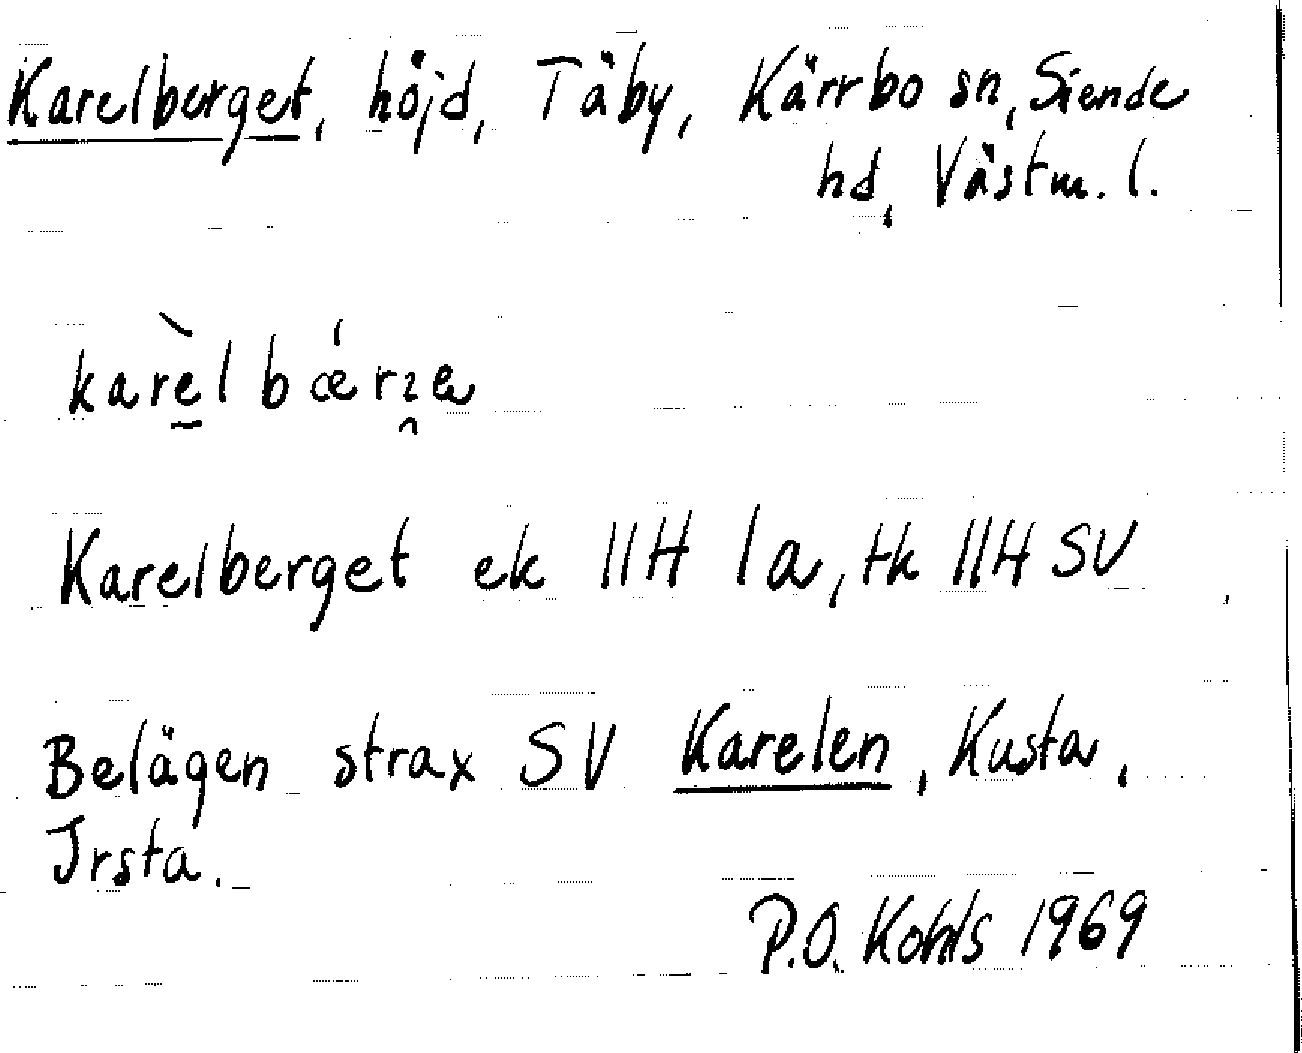 Karelberget, höjd, Täby, Kärrbo sn, Siende
hd, Västm. l.
karèl bǽrza
Karelberget ek 11H 1a, tk 11H SV
Belägen strax SV Karelen, Kusta,
Irsta.
P.O. Kohls 1969